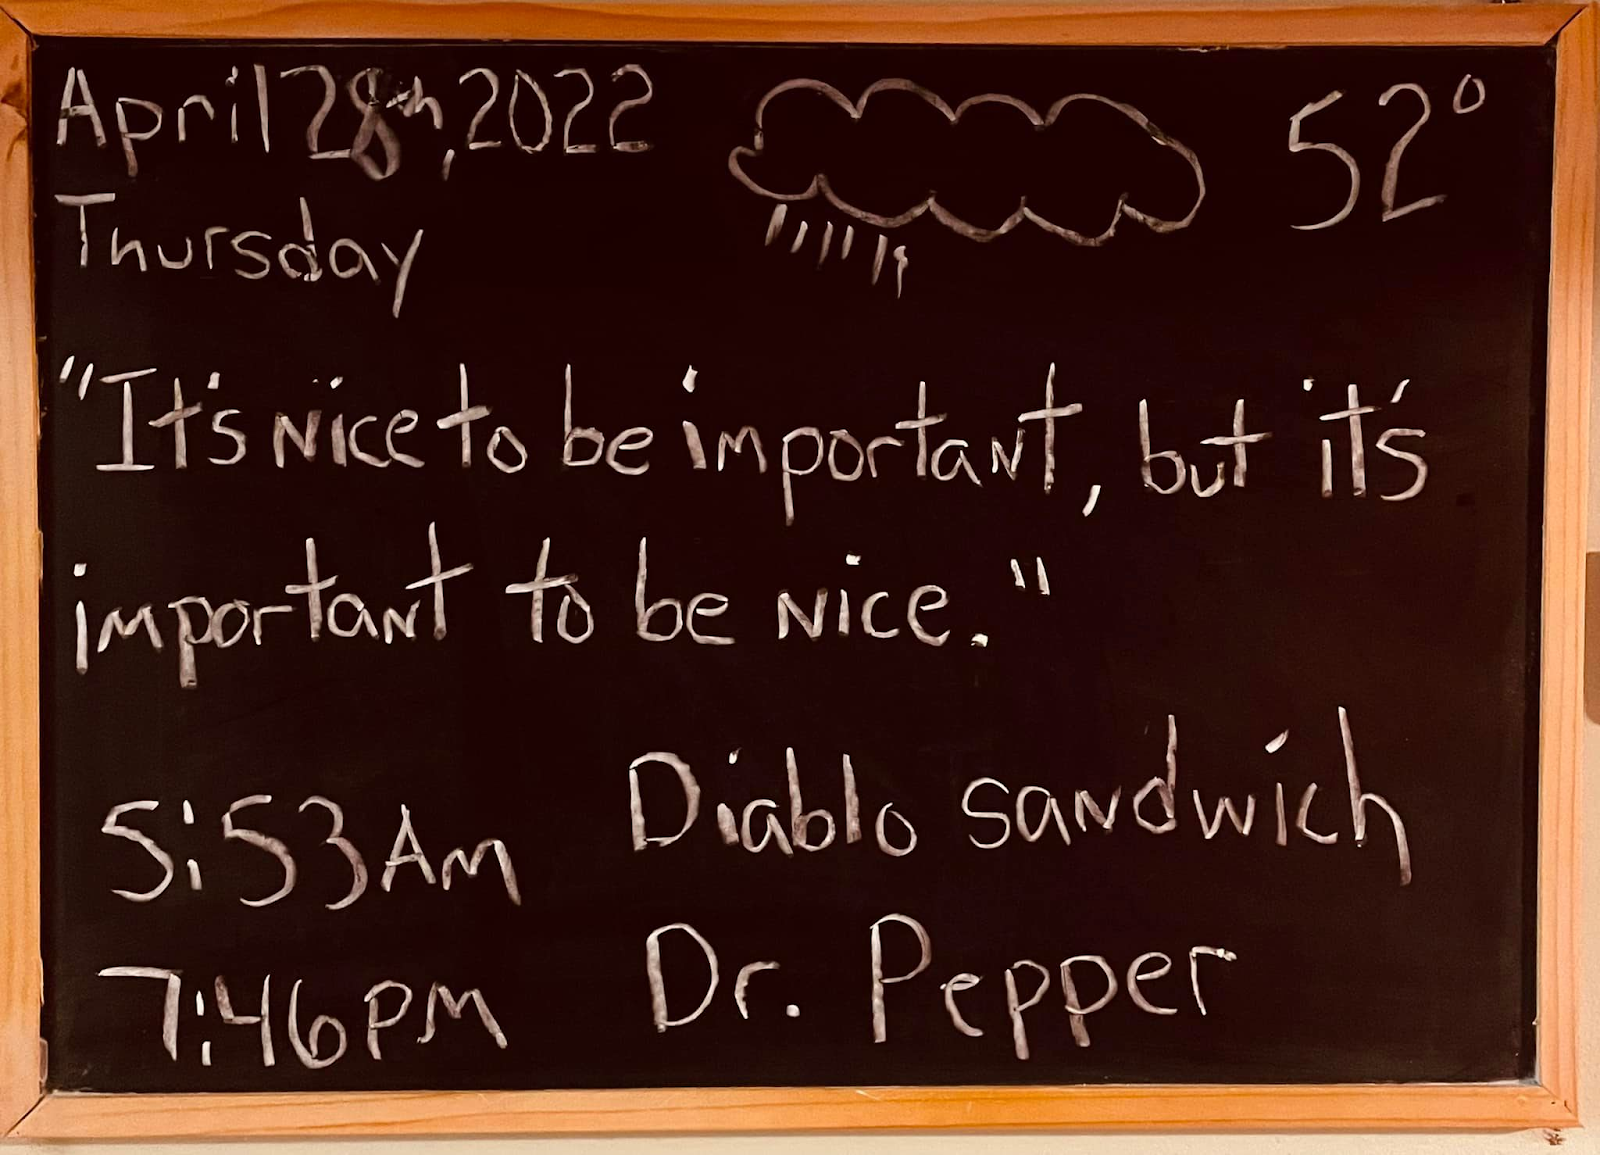 April 28th, 2022
52°
Thursday
"It's nice to be important, but it's
important to be nice."
5:53AM
Diablo sandwich
7:46PM
Dr. Pepper